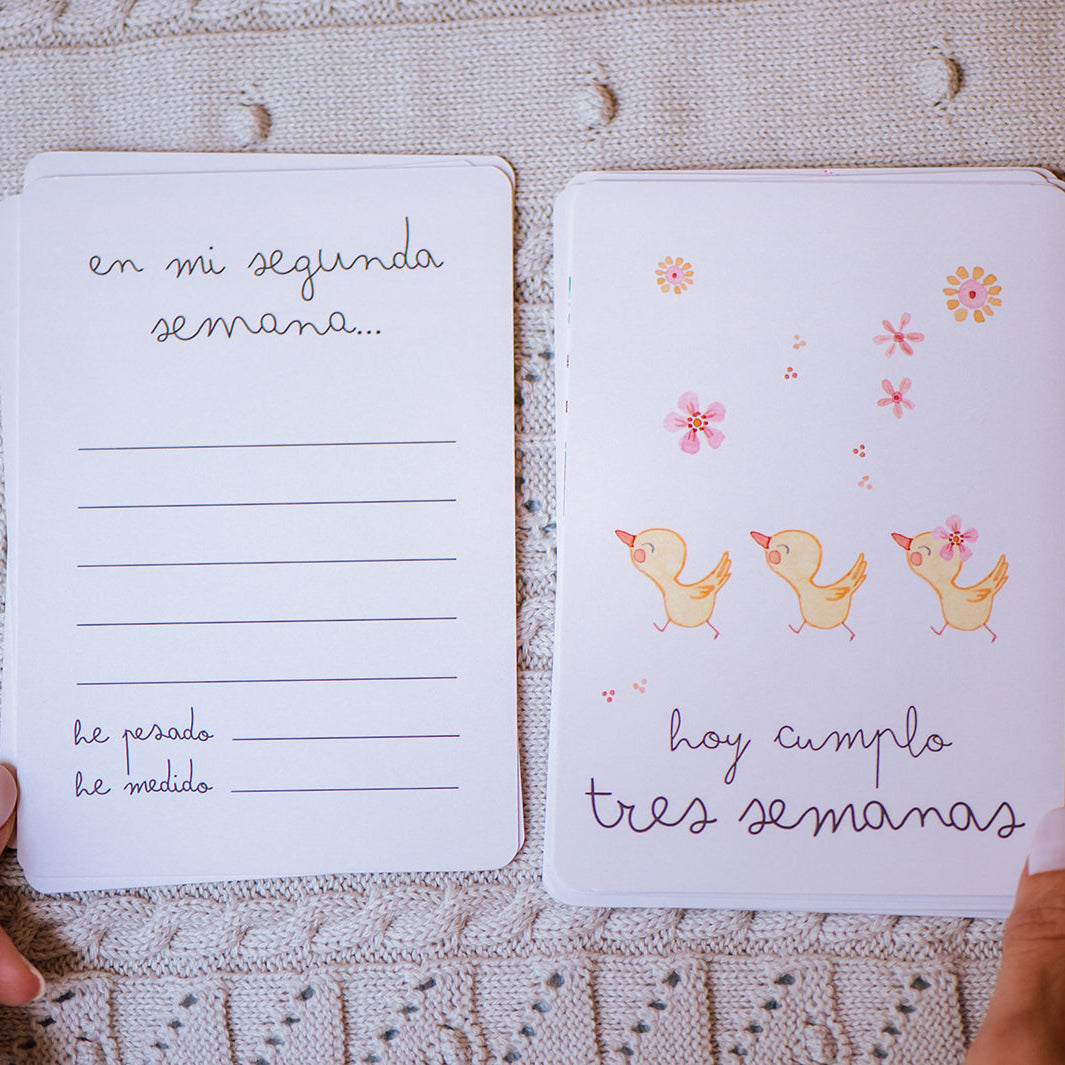 en mi segunda
semana...
he pesado
he medido
hoy cumplo
tres semanas